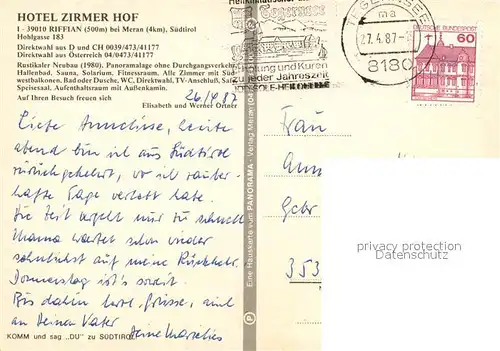 HOTEL ZIRMER HOF
I - 39010 RIFFIAN (500m) bei Meran (4km), Südtirol
Hohlgasse 183
Direktwahl aus D und CH 0039/473/41177
Direktwahl aus Österreich 04/0473/41177
Rustikaler Neubau (1980). Panoramalage ohne Durchgangsverkehr.
Hallenbad, Sauna, Solarium, Fitnessraum. Alle Zimmer mit Süd-
westbalkonen. Bad oder Dusche, WC, Direktwahl, TV-Anschluß, Saf
Speisesaal. Aufenthaltsraum mit Außenkamin.
Auf Ihren Besuch freuen sich
Elisabeth und Werner Ortner
26/4 87
Liebe Annelise, heute
abend bin ich aus Südtirol
zurückgekehrt, wo ich zauber-
hafte Tage verlebt habe.
Die Zeit vergeht nur zu schnell
Mama wartet schon wieder
sehnlichst auf meine Rückkehr.
Donnerstag ist's soweit.
Bis dahin herzl. Grüsse, auch
an Deinen Vater
Deine Marlies
KOMM und sag „DU" zu SÜDTIROL
Eine Hauskarte vom PANORAMA - Verlag Meran
Tegernsee
Erholung und Kuren
zu jeder Jahreszeit
TEGERNSEE
ma
27.4.87-
8180
DEUTSCHE BUNDESPOST
60
Frau
Ann
Gebr
353
privacy protection
Datenschutz